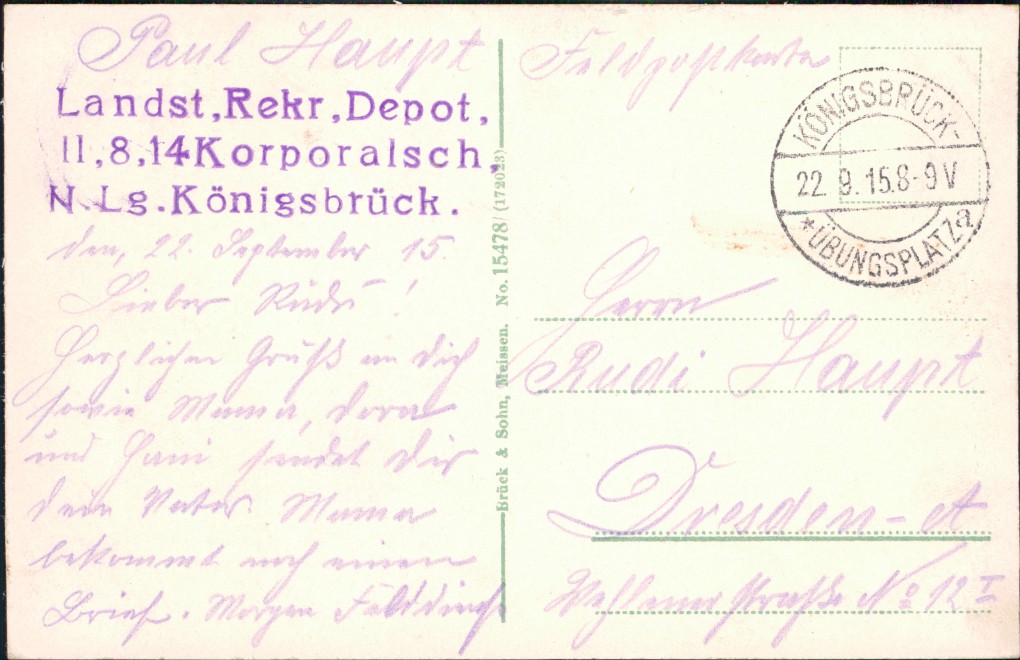 Paul Haupt
Landst, Rekr, Depot,
II, 8, 14 Korporalsch,
N. Lg. Königsbrück.
den, 22. September 15.
Lieber Rudi!
Herzlichen Gruß an Dich
sowie Mama, Dora
und Hani sendet Dir
dein Vater. Mama
bekommt noch einen
Brief. Morgen Felddienst
Brück & Sohn, Meissen. No. 15478/(172023)
Feldpostkarte
KÖNIGSBRÜCK-
22 9. 15. 8-9 V
* ÜBUNGSPLATZ a
Herrn
Rudi Haupt
Dresden-A
Wehlener Straße No 12 I